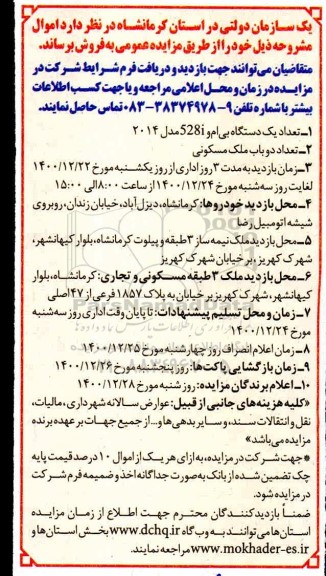 یک سازمان دولتی در استان کرمانشاه در نظر دارد اموال
مشروحه ذیل خود را از طریق مزایده عمومی به فروش برساند.
متقاضیان می‌توانند جهت بازدید و دریافت فرم شرایط شرکت در
مزایده در زمان و محل اعلامی مراجعه و یا جهت کسب اطلاعات
بیشتر با شماره تلفن ۹-۳۸۳۷۴۹۷۸-۰۸۳ تماس حاصل نمایند.
۱-تعداد یک دستگاه بی‌ام‌و 528i مدل ۲۰۱۴
۲-تعداد دو باب ملک مسکونی
۳-زمان بازدید به مدت ۳ روز اداری از روز یکشنبه مورخ ۱۴۰۰/۱۲/۲۲
لغایت روز سه‌شنبه مورخ ۱۴۰۰/۱۲/۲۴ از ساعت ۸:۰۰ الی ۱۵:۰۰
۴-محل بازدید خودروها: کرمانشاه، دیزل‌آباد، خیابان زندان، روبروی
شیشه اتومبیل رضا
۵-محل بازدید ملک نیمه‌ساز ۳ طبقه و پیلوت کرمانشاه، بلوار کیهانشهر،
شهرک کهریز، بر خیابان شهرک کهریز
۶-محل بازدید ملک ۳ طبقه مسکونی و تجاری: کرمانشاه، بلوار
کیهانشهر، شهرک کهریز بر خیابان به پلاک ۱۸۵۷ فرعی از ۴۷ اصلی
۷-زمان و محل تسلیم پیشنهادات: تا پایان وقت اداری روز سه‌شنبه
مورخ ۱۴۰۰/۱۲/۲۴
۸-زمان اعلام انصراف روز چهارشنبه مورخ ۱۴۰۰/۱۲/۲۵
۹-زمان بازگشایی پاکت‌ها: روز پنجشنبه مورخ ۱۴۰۰/۱۲/۲۶
۱۰-اعلام برندگان مزایده: روز شنبه مورخ ۱۴۰۰/۱۲/۲۸
«کلیه هزینه‌های جانبی از قبیل: عوارض سالانه شهرداری، مالیات،
نقل و انتقالات سند، و سایر بدهی‌ها و... از جمیع جهات بر عهده برنده
مزایده می‌باشد»
*جهت شرکت در مزایده، به ازای هر یک از اموال ۱۰ درصد قیمت پایه
چک تضمین شده از بانک به صورت جداگانه اخذ و ضمیمه فرم شرکت
در مزایده شود.
ضمناً بازدیدکنندگان محترم جهت اطلاع از زمان مزایده
استان‌ها می‌توانند به وب گاه www.dchq.ir بخش استان‌ها و
www.mokhader-es.ir مراجعه نمایند.